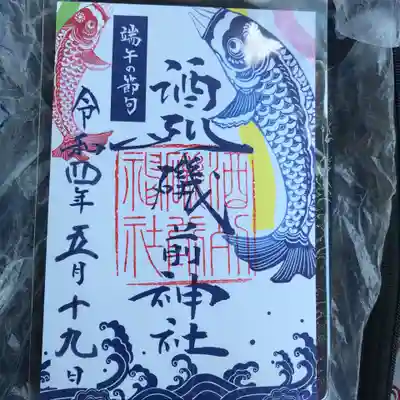 端午の節句
酒列磯前神社
酒列
磯前
神社
令和四年五月十九日